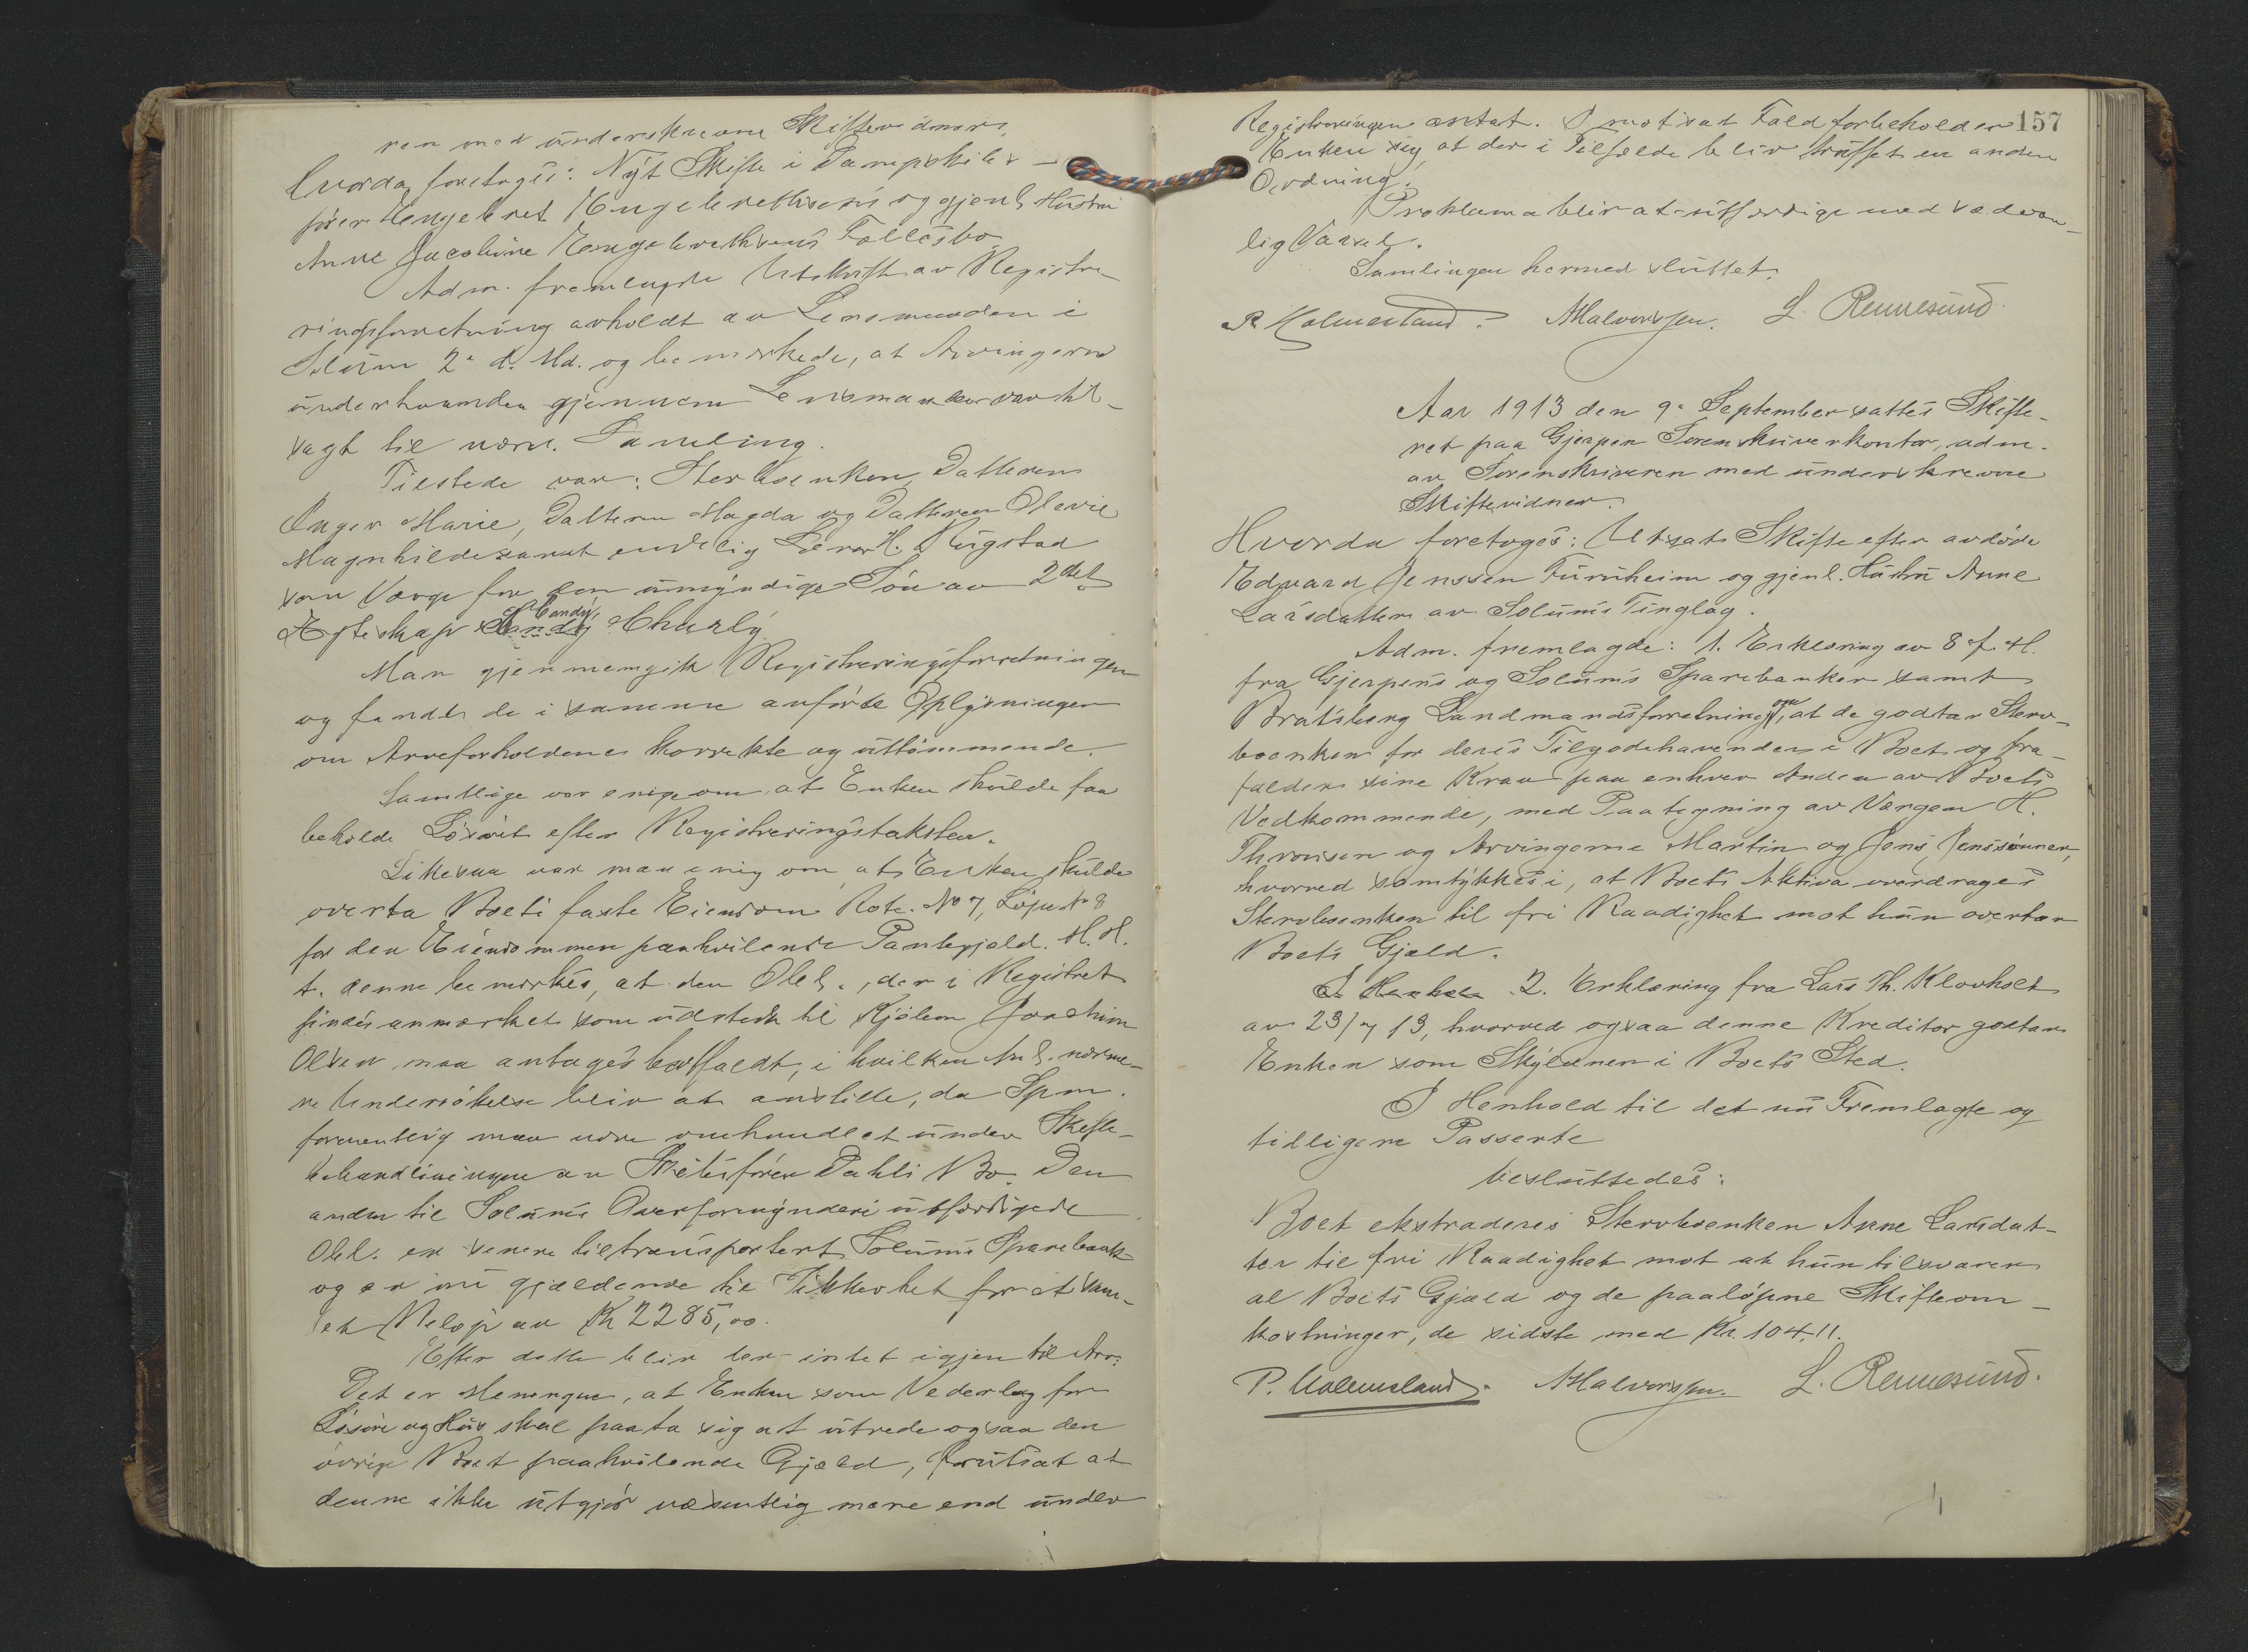 ren med underskrevne Skiftevidner.
Hvorda foretoges: Nyt Skifte i Dampskibs-
fører Hengebret Engebrethsens og gjenl. Hustru
Anne Jacobine Engebrethsens Fællesbo.
Adm. fremlagde Utskrift av Registre-
ringsforretning avholdt av Lensmanden i
Solum 2. d. Md. og bemerkede, at Arvingerne
underhaanden gjennem Lensmanden var til-
sagt til nærv. Samling.
Tilstede var: Sterboenken, Datteren
Inger Marie, Datteren Magda og Datteren Olavie
Magnhilde samt endelig Lærer H. Rugstad
som Værge for den umyndige Søn av 2det
Egteskap Candy Charly.
Man gjennemgik Registreringsforretningen
og fandtes de i samme anførte Oplysninger
om Arveforholdene korrekte og uttømmende.
Samtlige var enige om, at Enken skulde faa
beholde Løsøret efter Registreringstaksten.
Likesaa var man enig om, at Enken skulde
overta Boets faste Eiendom Rote No 7, Løpe No 8
for den Eiendommen paahvilende Pantegjæld. M. H.
t. denne bemerkes, at den Obl., der i Registret
findes anmerket som utstedt til Kjøbm Joachim
Olsen maa antages bortfaldt, i hvilken Anl. nærme-
re Undersøkelse blir at anstille, da Spm.
formentlig maa være omhandlet under Skifte-
behandlingen av Skibsfører Dahls Bo. Den
anden til Solums Overformynderi utfærdigede
Obl. er senere tiltransportert Solums Sparebank
og er nu gjældende til Sikkerhet for et sam-
let Beløp av Kr 2285,00.
Efter dette blir der intet igjen til Arv.
Det er Meningen, at Enken som Vederlag for
Løsøre og Hus skal paata sig at utrede ogsaa den
øvrige Boet paahvilende Gjæld, forutsat at
denne ikke utgjør væsentlig mere end under
157
Registreringen antat. I motsat Fald forbeholder
Enken sig, at der i Tilfælde blir truffet en anden
Ordning.
Proklama blir at utfærdige med sedvan-
lig Varsel.
Samlingen hermed sluttet.
P. Holmesland. AHalvorsen. L. Rennesund.
Aar 1913 den 9. September sattes Skifte-
ret paa Gjerpen Sorenskriverkontor, adm.
av Sorenskriveren med underskrevne
Skiftevidner.
Hvorda foretoges: Utsat Skifte efter avdøde
Edvard Jenssen Furuheim og gjenl. Hustru Anne
Larsdatter av Solums Tinglag.
Adm. fremlagde: 1. Erklæring av 8 f. M.
fra Gjerpens og Solums Sparebanker samt
Bratsberg Landmandsforretning om, at de godtar Sterv-
boenken for deres Tilgodehavender i Boet og fra-
falder sine Krav paa enhver Anden av Boets
Vedkommende, med Paategning av Værgen H.
Thronsen og Arvingerne Martin og Jens Jenssønner,
hvorved samtykkes i, at Boets Aktiva overdrages
Stervboenken til fri Raadighet mot hun overtar
Boets Gjæld.
2. Erklæring fra Lars Th. Klovholt
av 23/7 13, hvorved ogsaa denne Kreditor godtar
Enken som Skyldner i Boets Sted.
I Henhold til det nu Fremlagte og
tidligere Passerte
besluttedes:
Boet ekstraderes Stervboenken Anne Larsdat-
ter til fri Raadighet mot at hun tilsvarer
al Boets Gjæld og de paaløpne Skifteom-
kostninger, de sidste med Kr. 104,11.
P. Holmesland. AHalvorsen. L. Rennesund.